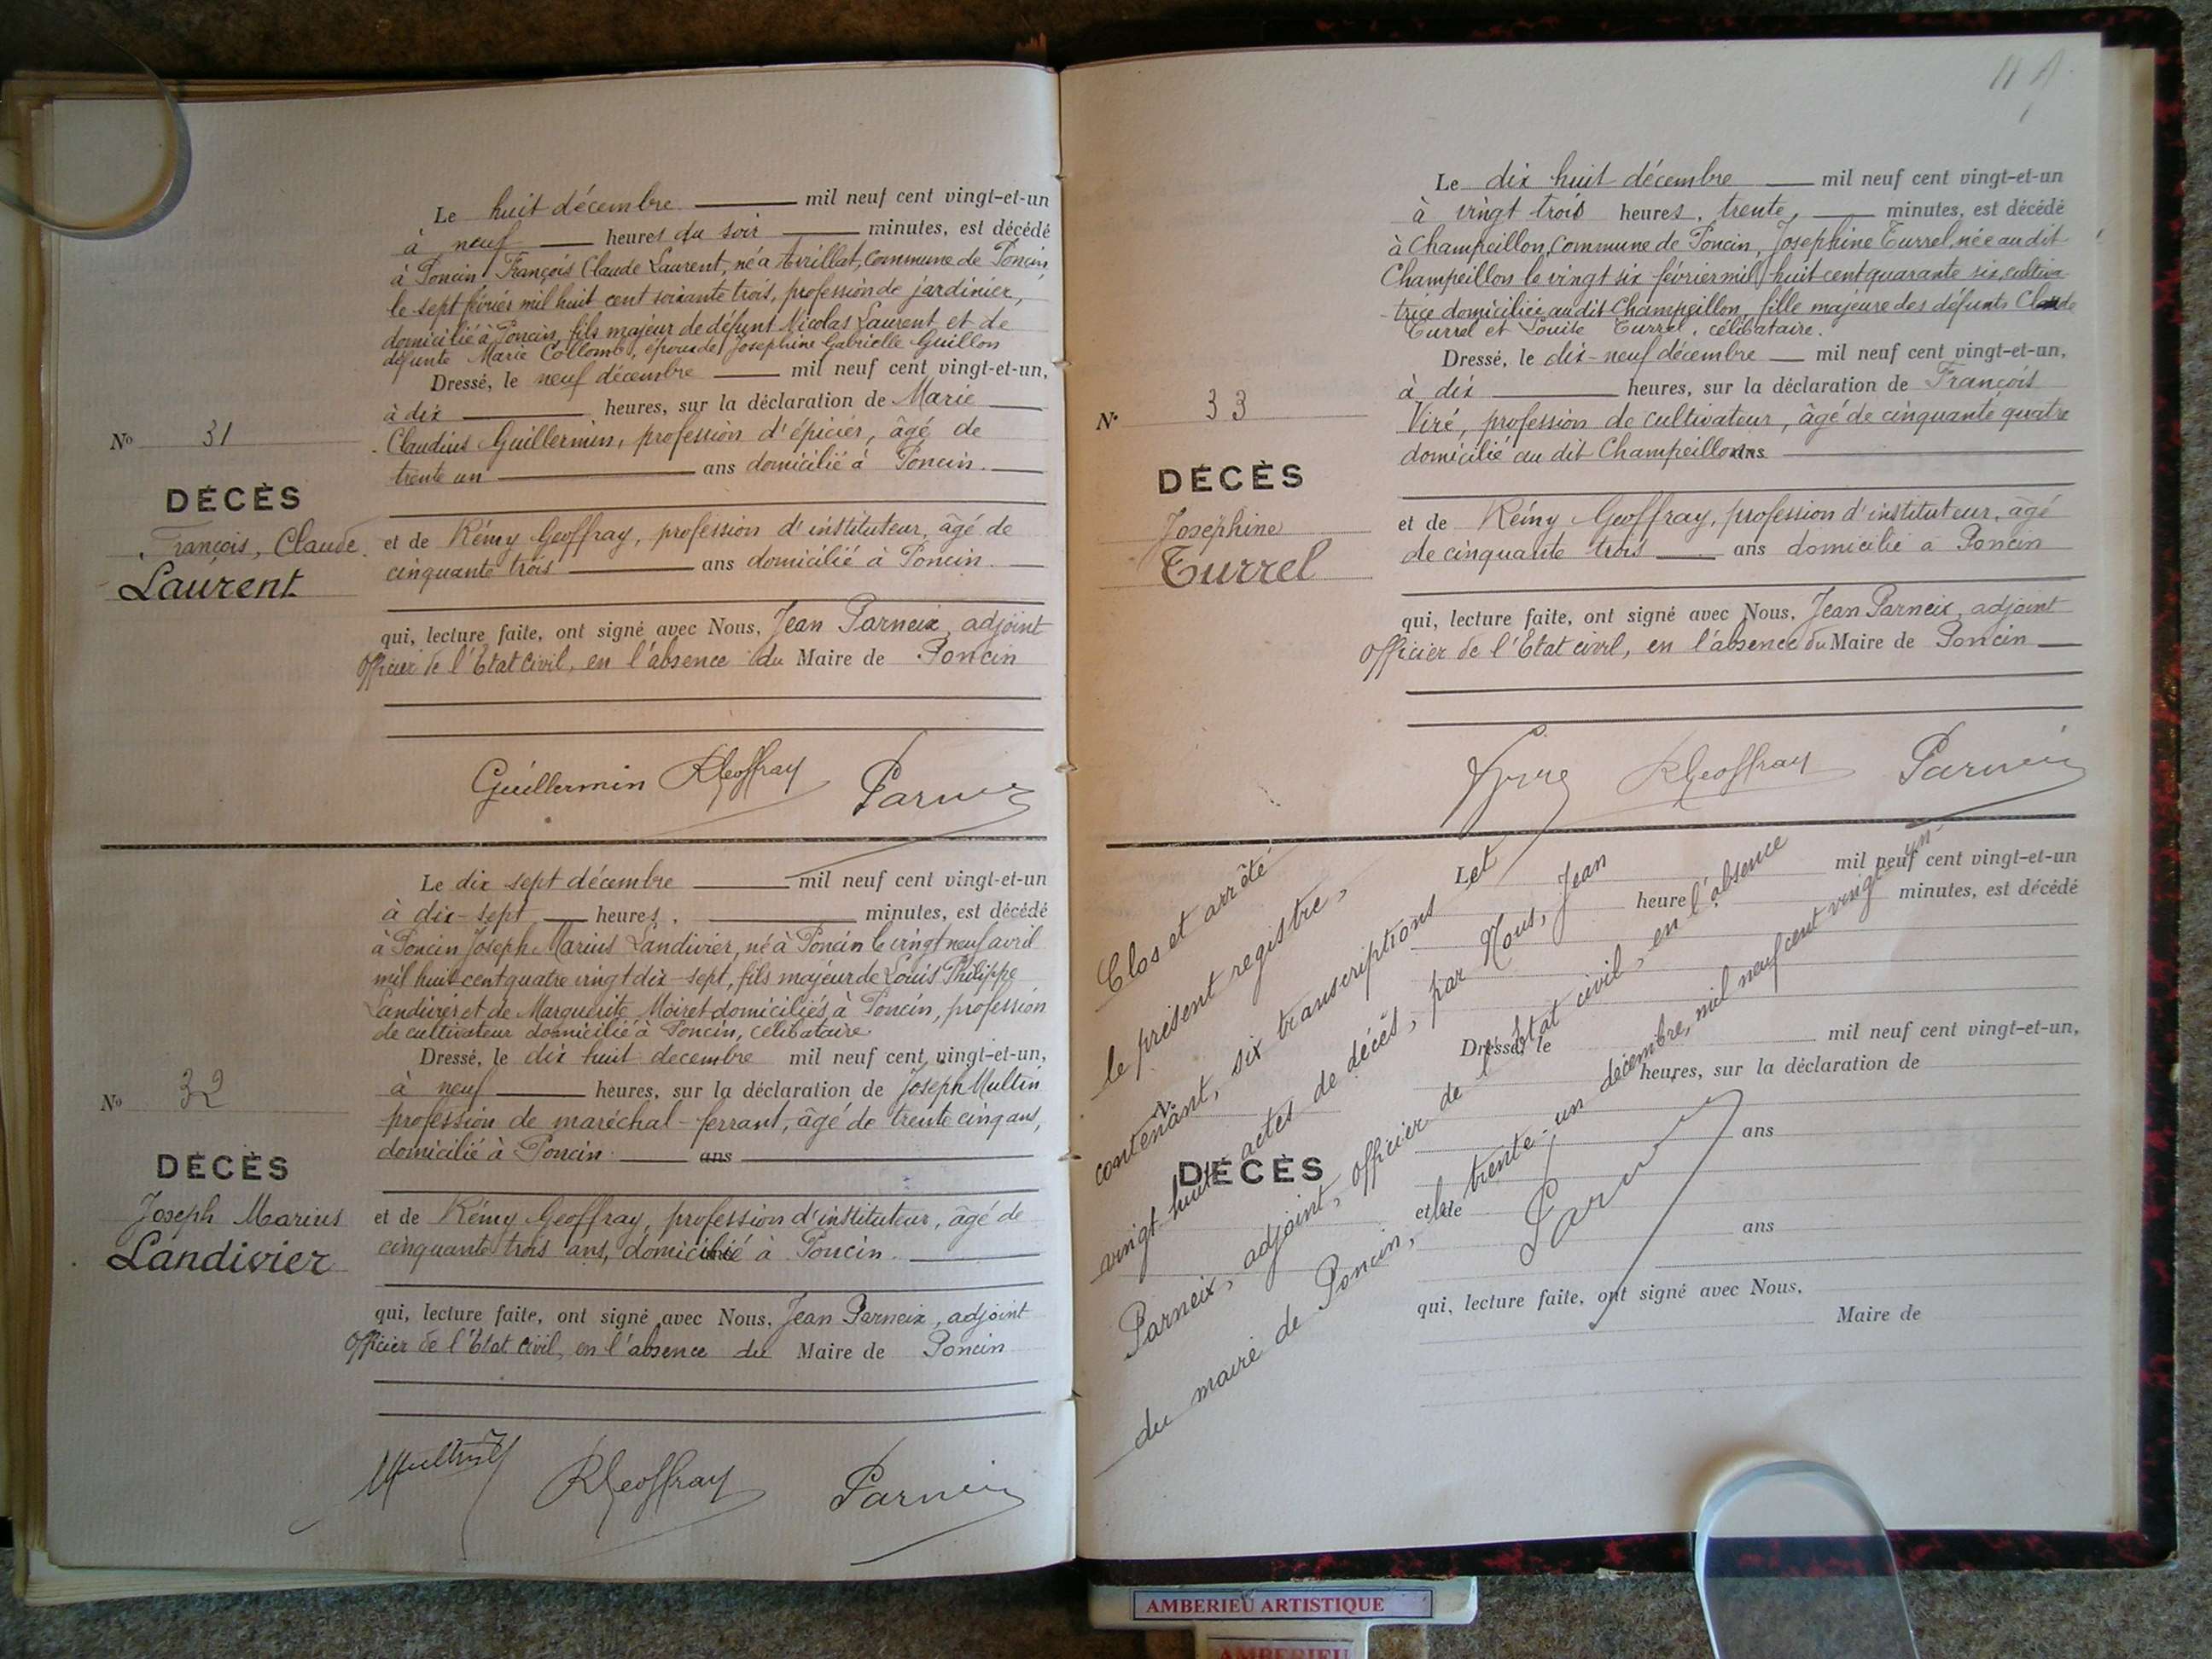 Le huit décembre mil neuf cent vingt-et-un
à neuf heures du soir minutes, est décédé
à Poncin François Claude Laurent, né à Avrillat, Commune de Poncin,
le sept février mil huit cent soixante trois, profession de jardinier,
domicilié à Poncin, fils majeur de défunt Nicolas Laurent et de
défunte Marie Collomb, époux de Josephine Gabrielle Guillon
Dressé, le neuf décembre mil neuf cent vingt-et-un,
à dix heures, sur la déclaration de Marie
Claudius Guillermin, profession d'épicier, âgé de
trente un ans domicilié à Poncin.
No 31
DÉCÈS
François, Claude
Laurent
et de Rémy Geoffray, profession d'instituteur, âgé de
cinquante trois ans domicilié à Poncin.
qui, lecture faite, ont signé avec Nous, Jean Parneix, adjoint
Officier de l'Etat Civil, en l'absence du Maire de Poncin
Guillermin RGeoffray Parneix
Le dix sept décembre mil neuf cent vingt-et-un
à dix-sept heures, minutes, est décédé
à Poncin Joseph Marius Landivier, né à Poncin le vingt neuf avril
mil huit cent quatre vingt dix-sept, fils majeur de Louis Philippe
Landivier et de Marguerite Moiret domiciliés à Poncin, profession
de cultivateur domicilié à Poncin, célibataire
Dressé, le dix huit decembre mil neuf cent vingt-et-un,
à neuf heures, sur la déclaration de Joseph Multin
profession de maréchal-ferrant, âgé de trente cinq ans,
domicilié à Poncin ans
No 32
DÉCÈS
Joseph Marius
Landivier
et de Rémy Geoffray, profession d'instituteur, âgé de
cinquante trois ans, domicilié à Poncin.
qui, lecture faite, ont signé avec Nous, Jean Parneix, adjoint
Officier de l'Etat Civil, en l'absence du Maire de Poncin
Multin RGeoffray Parneix
Le dix huit décembre mil neuf cent vingt-et-un
à vingt trois heures, trente, minutes, est décédé
à Champeillon, Commune de Poncin, Josephine Turrel, née au dit
Champeillon le vingt six février mil huit cent quarante six, cultiva
trice domiciliée au dit Champeillon, fille majeure des défunts Claude
Turrel et Louise Turrel, célibataire.
Dressé, le dix-neuf décembre mil neuf cent vingt-et-un,
à dix heures, sur la déclaration de François
Viré, profession de cultivateur, âgé de cinquante quatre
domicilié au dit Champeillon ans
No 33
DÉCÈS
Josephine
Turrel
et de Rémy Geoffray, profession d'instituteur, âgé
de cinquante trois ans domicilié à Poncin
qui, lecture faite, ont signé avec Nous, Jean Parneix, adjoint
Officier de l'Etat civil, en l'absence du Maire de Poncin
RGeoffray Parneix
Le mil neuf cent vingt-et-un
heure minutes, est décédé
Dressé, le mil neuf cent vingt-et-un,
heures, sur la déclaration de
ans
N°
DÉCÈS
et de
ans
qui, lecture faite, ont signé avec Nous,
Maire de
Clos et arrêté
le présent registre,
contenant, six transcriptions et
vingt huit actes de décès, par Nous, Jean
Parneix, adjoint, officier de l'Etat civil, en l'absence
du maire de Poncin, le trente-un décembre, mil neuf cent vingt-un.
Parneix
AMBERIEU ARTISTIQUE
AMBERIEU